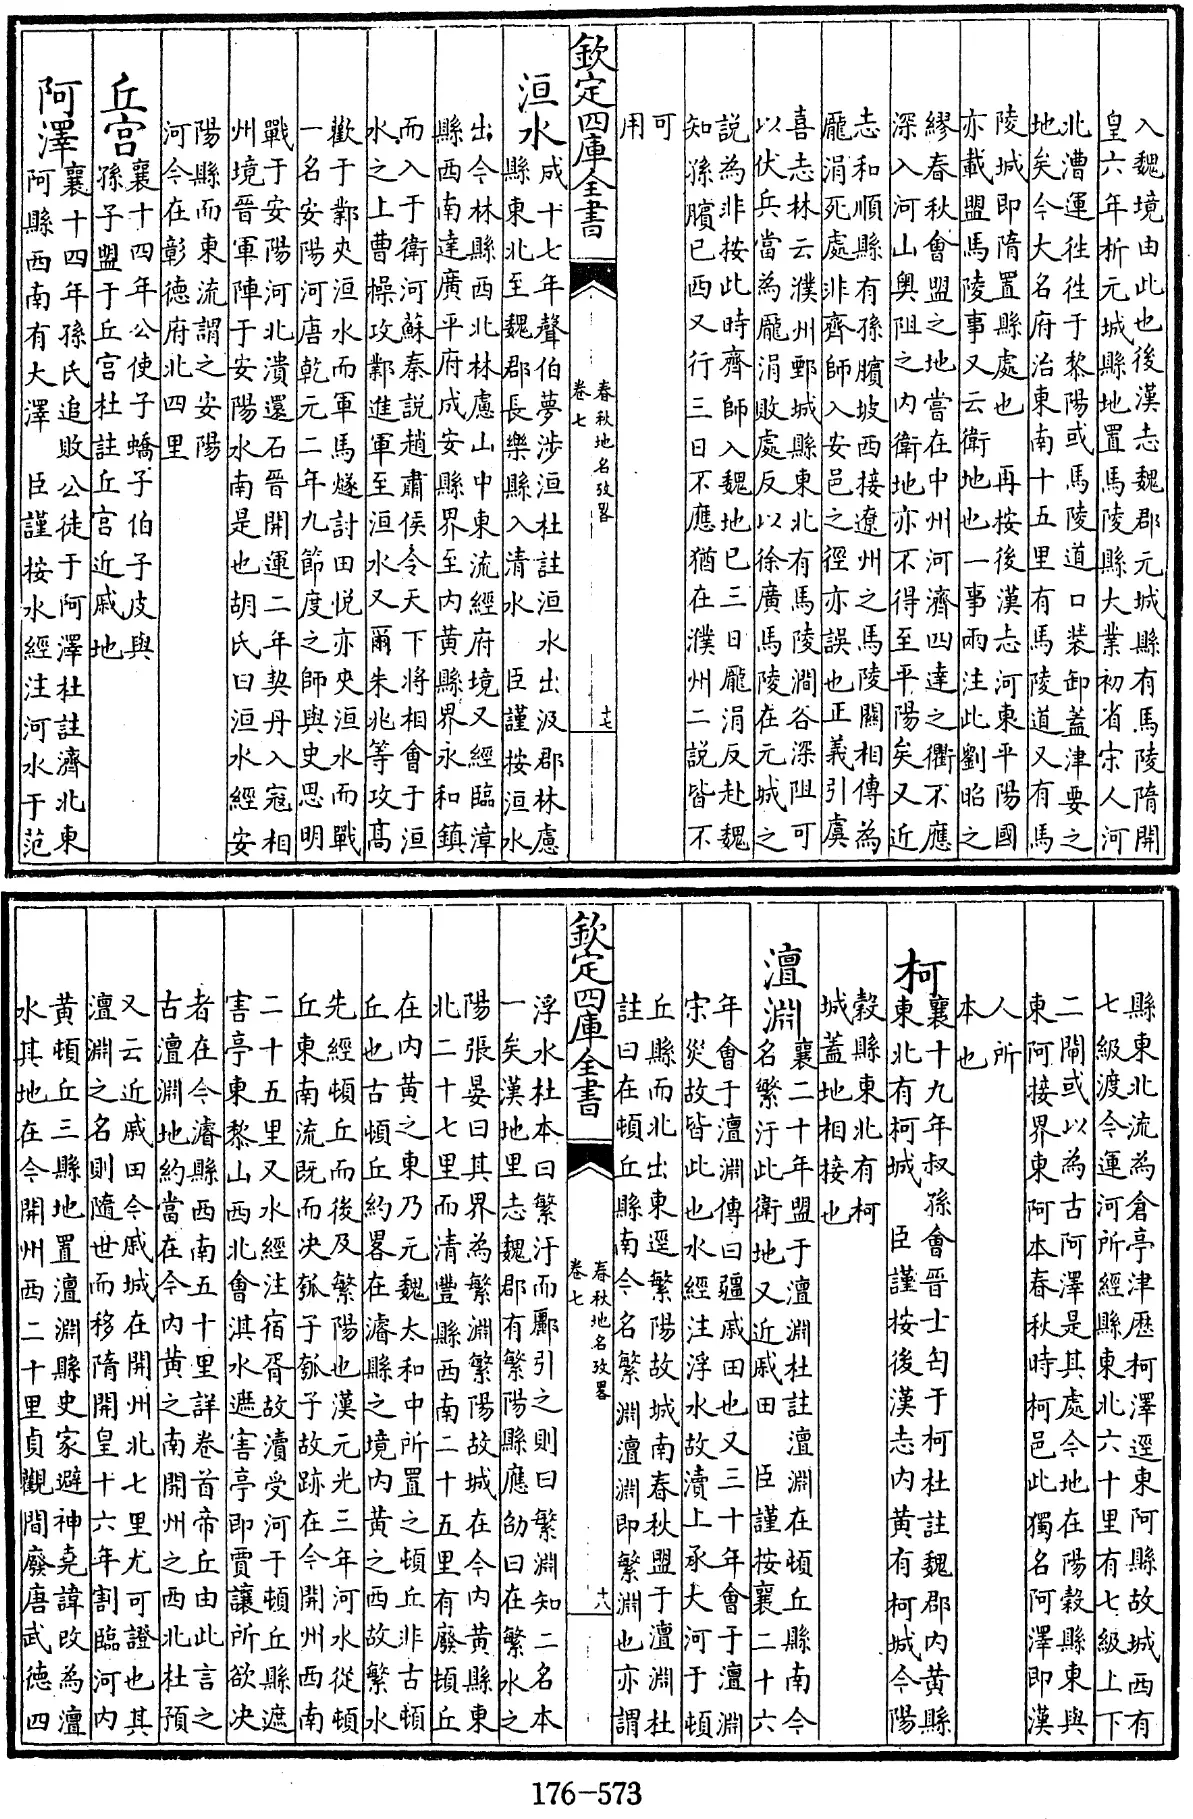 入魏境由此也後漢志魏郡元城縣有馬陵隋開
皇六年析元城縣地置馬陵縣大業初省宋人河
北漕運往往于黎陽或馬陵道口裝卸蓋津要之
地矣今大名府治東南十五里有馬陵道又有馬
陵城即隋置縣處也　再按後漢志河東平陽國
亦載盟馬陵事又云衛地也一事兩注此劉昭之
繆春秋會盟之地當在中州河濟四達之衢不應
深入河山奧阻之内衛地亦不得至平陽矣又近
志和順縣有孫臏坡西接遼州之馬陵關相傳為
龎涓死處非齊師入安邑之徑亦誤也正義引虞
喜志林云濮州鄄城縣東北有馬陵澗谷深阻可
以伏兵當為龎涓敗處反以徐廣馬陵在元城之
説為非按此時齊師入魏地已三日龎涓反赴魏
知孫臏已西又行三日不應猶在濮州二説皆不
可
用
欽定四庫全書
春秋地名攷畧
卷七
十七
洹水
成十七年聲伯夢涉洹杜註洹水出汲郡林慮
縣東北至魏郡長樂縣入清水　臣謹按洹水
出今林縣西北林慮山中東流經府境又經臨漳
縣西南達廣平府成安縣界至内黄縣界永和鎮
而入于衛河蘇秦説趙肅侯令天下將相會于洹
水之上曹操攻鄴進軍至洹水又爾朱兆等攻髙
歡于鄴夾洹水而軍馬燧討田悦亦夾洹水而戰
一名安陽河唐乾元二年九節度之師與史思明
戰于安陽河北潰還石晉開運二年契丹入寇相
州境晉軍陣于安陽水南是也胡氏曰洹水經安
陽縣而東流謂之安陽
河今在彰德府北四里
丘宫
襄十四年公使子蟜子伯子皮與
孫子盟于丘宫杜註丘宫近戚地
阿澤
襄十四年孫氏追敗公徒于阿澤杜註濟北東
阿縣西南有大澤　臣謹按水經注河水于范
縣東北流為倉亭津歴柯澤逕東阿縣故城西有
七級渡今運河所經縣東北六十里有七級上下
二閘或以為古阿澤是其處今地在陽穀縣東與
東阿接界東阿本春秋時柯邑此獨名阿澤即漢
人所
本也
柯
襄十九年叔孫會晉士匄于柯杜註魏郡内黄縣
東北有柯城　臣謹按後漢志内黄有柯城今陽
穀縣東北有柯
城蓋地相接也
澶淵
襄二十年盟于澶淵杜註澶淵在頓丘縣南今
名繁汙此衛地又近戚田　臣謹按襄二十六
年會于澶淵傳曰疆戚田也又三十年會于澶淵
宋災故皆此也水經注浮水故瀆上承大河于頓
丘縣而北出東逕繁陽故城南春秋盟于澶淵杜
註曰在頓丘縣南今名繁淵澶淵即繁淵也亦謂
欽定四庫全書
春秋地名攷畧
卷七
十八
浮水杜本曰繁汙而酈引之則曰繁淵知二名本
一矣漢地里志魏郡有繁陽縣應劭曰在繁水之
陽張晏曰其界為繁淵繁陽故城在今内黄縣東
北二十七里而清豐縣西南二十五里有廢頓丘
在内黄之東乃元魏太和中所置之頓丘非古頓
丘也古頓丘約畧在濬縣之境内黄之西故繁水
先經頓丘而後及繁陽也漢元光三年河水從頓
丘東南流既而决瓠子瓠子故跡在今開州西南
二十五里又水經注宿胥故瀆受河于頓丘縣遮
害亭東黎山西北會淇水遮害亭即賈讓所欲决
者在今濬縣西南五十里詳卷首帝丘由此言之
古澶淵地約當在今内黄之南開州之西北杜預
又云近戚田今戚城在開州北七里尤可證也其
澶淵之名則隨世而移隋開皇十六年割臨河内
黄頓丘三縣地置澶淵縣史家避神堯諱改為澶
水其地在今開州西二十里貞觀間廢唐武德四
176-573